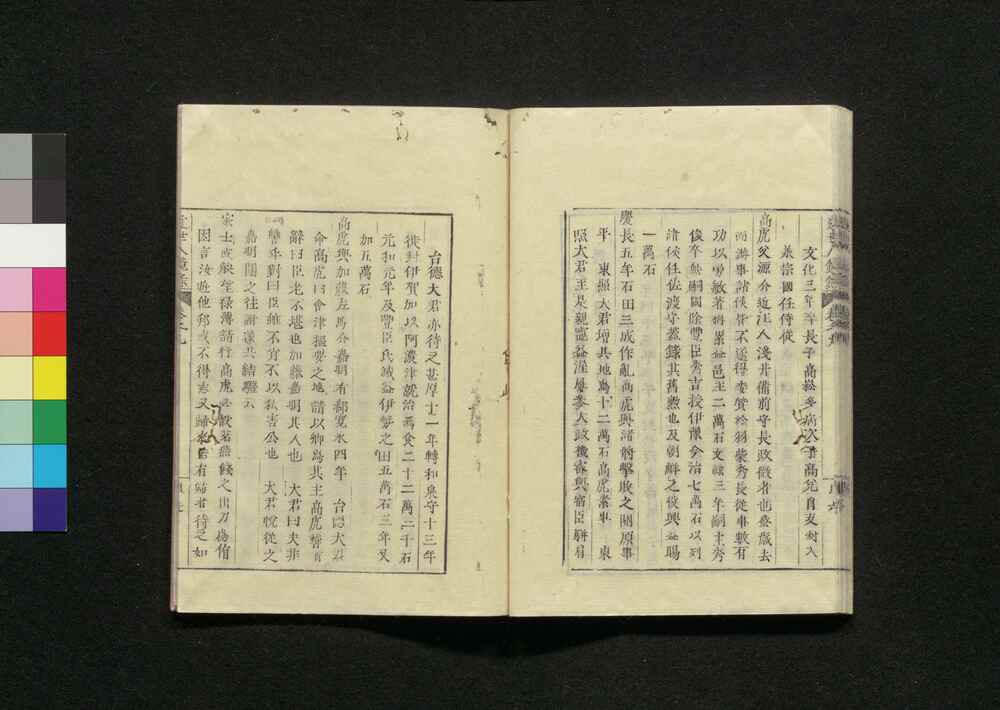 文化三年卒長子高崧多病次子高兌自支封入
兼宗國任侍從
高虎父源介近江人淺井備前守長政微者也壹歲去
而游事諸侯皆不遂得委質於羽柴秀長從事數有
功以勇敏著稱累益邑至二萬石文祿三年嗣主秀
俊卒無嗣國除豐臣秀吉授伊豫今治七萬石以列
諸侯任佐渡守蓋錄其舊勲也及朝鮮之役興益賜
一萬石
慶長五年石田三成作亂高虎與諸將擊敗之關原事
平　東照大君增其地為十二萬石高虎素事　東
照大君至是親寵益渥屢參大政機審與宿臣駢肩
台德大君亦待之甚厚十一年轉和泉守十三年
徙封伊賀加以阿濃津就治焉食二十二萬二千石
元和元年及豐臣氏滅益伊勢之田五萬石三年又
加五萬石
高虎與加藤左馬介嘉明有郤寬永四年　台德大君
命高虎曰會津樞要之地請以卿為其主高虎誓首
辭曰臣老不堪也加藤嘉明其人也　大君曰夫非
讐乎對曰臣雖不肖不以私害公也　大君悅從之
嘉明聞之往謝遂共結驩云
家士或厭秩祿薄請行高虎必設茗燕餞之出刀為侑
因言汝近他邦或不得志又歸來皆有焉者待之如
近世人鏡錄